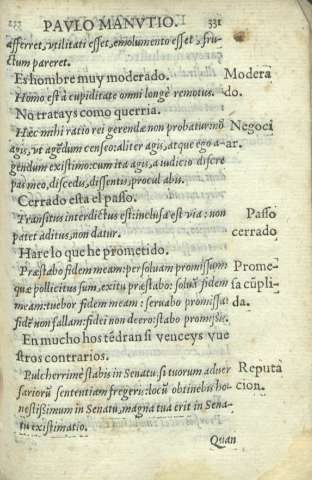 PAVLO MANVTIO. 331
afferret, vtilitati esset, emolumento esset, fru-
ctum pareret.
Es hombre muy moderado. Modera
Homo est à cupiditate omni longè remotus. do.
No tratays como querria.
Hęc mihi ratio rei gerendæ non probatur: nō Negoci
agis, vt agēdum censeo: aliter agis, atque ego a- ar.
gendum existimo: cum ita agis, a iudicio discre
pas meo, discedis, dissentis, procul abis.
Cerrado esta el passo.
Transitus interdictus est: inclusa est via: non Passo
patet aditus, non datur. cerrado
Hare lo que he prometido.
Præstabo fidem meam: persoluam promissum Prome-
quæ pollicitus sum, exitu præstabo: soluā fidem sa cūpli
meam: tuebor fidem meam: seruabo promissa: da.
fidē non fallam: fidei non deero: stabo promissis.
En mucho hos tēdran si venceys vue
stros contrarios.
Pulcherrimè stabis in Senatu, si tuorum aduer Reputa
sariorū sententiam fregeris: locū obtinebis ho- cion.
nestissimum in Senatu, magna tua erit in Sena-
tu existimatio.
Quan